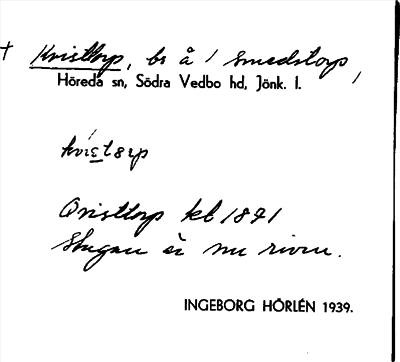 † Kvisttorp, bs å 1 Smedstorp,
Höreda sn, Södra Vedbo hd, Jönk. l.
kvistɛrp
Qvisttorp kb 1891
Stugan är nu riven.
INGEBORG HÖRLÉN 1939.